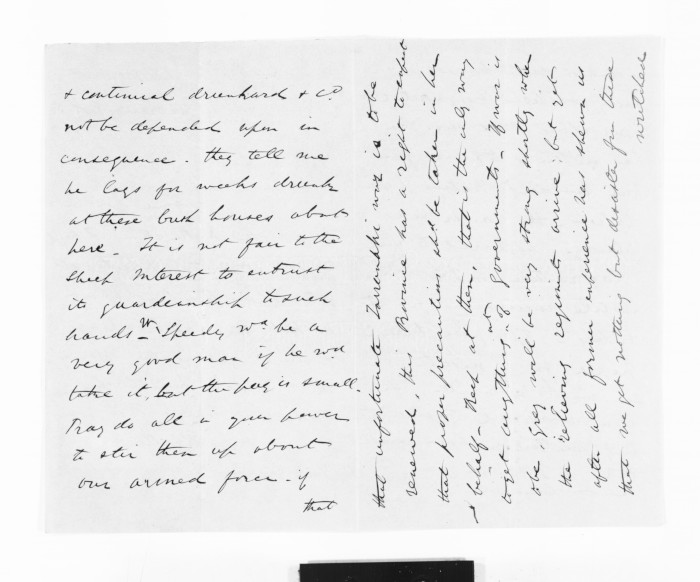 & continual drunkard & cd.
not be depended upon in
consequence. they tell me
he lags for weeks drunk
at these bush houses about
here. It is not fair to the
Sheep Interest to entrust
its guardianship to such
hands — Wm. Speedy wd be a
very good man if he wd
take it, but the pay is small.
Pray do all in your power
to stir them up about
our armed force - if
that
that unfortunate Taranaki war is to be
renewed, this Province has a right to expect
that proper precautions shd be taken in her
behalf - Keep at them, that is the only way
to get anything out of governments - If war is
to be, Grey will be very strong shortly when
the relieving regiments arrive; but yet
after all former experience has shewn us
that we get nothing but disaster from these
wretched